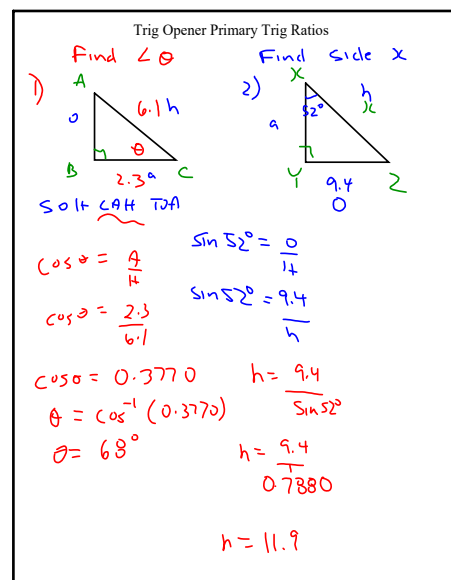 Trig Opener Primary Trig Ratios
Find ∠θ
1)
A
o
6.1 h
θ
B
C
2.3 a
SOH CAH TOA
cosθ = A/H
cosθ = 2.3/6.1
cosθ = 0.3770
θ = cos⁻¹ (0.3770)
θ = 68°
Find side x
2)
X
52°
h
x
a
Y
Z
9.4
O
sin 52° = O/H
sin 52° = 9.4/h
h = 9.4/sin 52°
h = 9.4/0.7880
h = 11.9